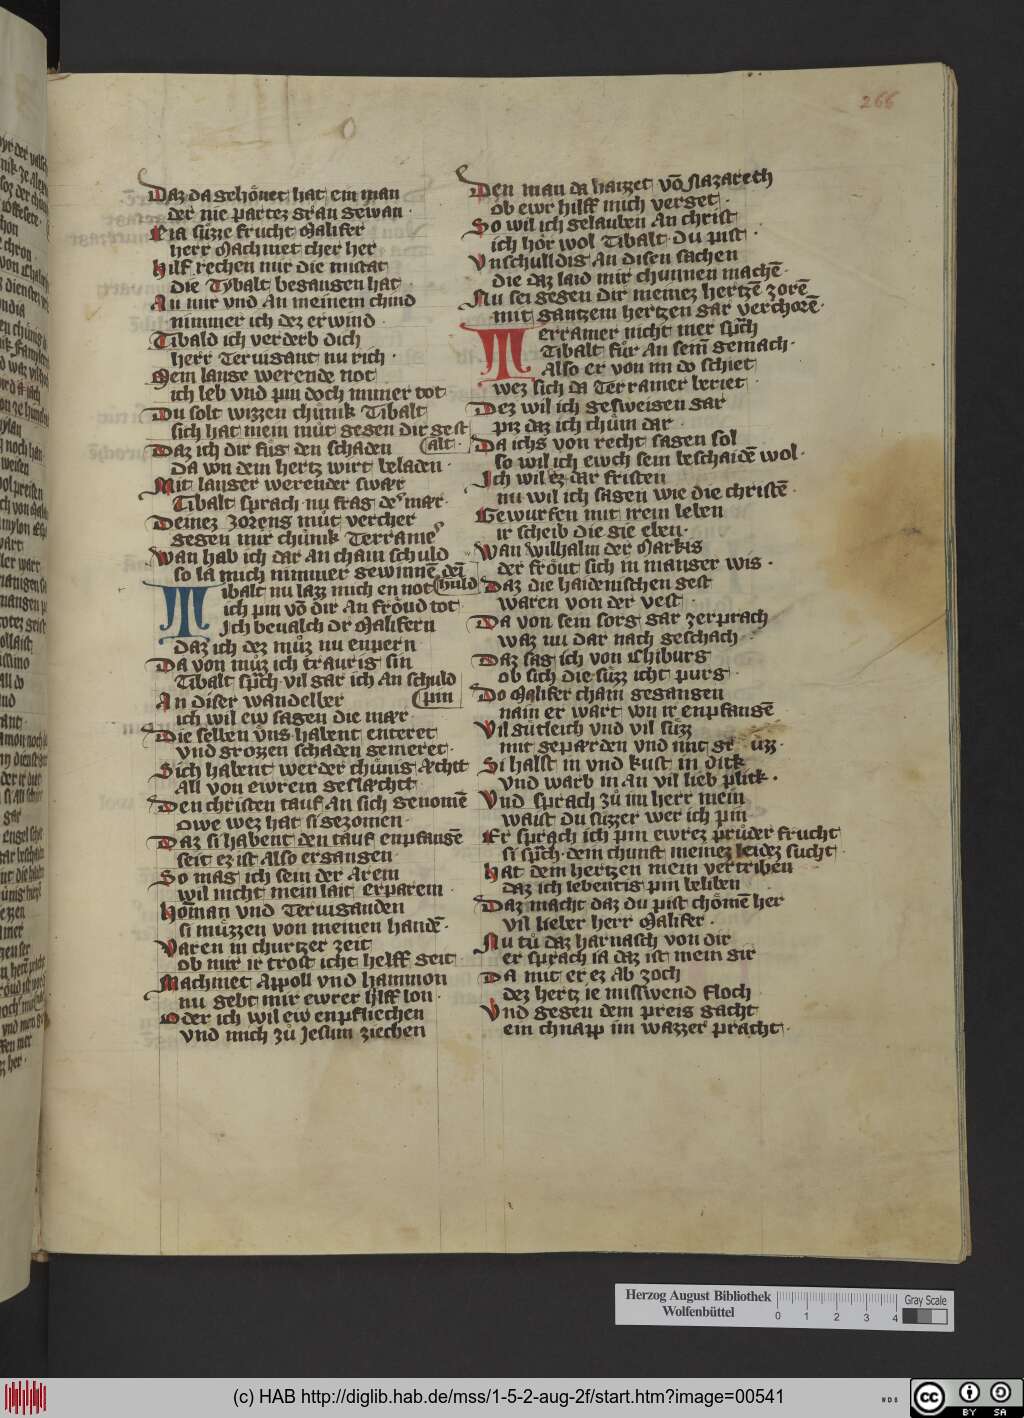 266
Daz da gehoͤnet hat ein man
der nie partez gran gewan ·
Eia suͤzze frucht Malifer
herr Machmet cher her
Hilf rechen mir die mistat
die Tybalt begangen hat ·
An mir vnd an meinem chind
nimmer ich dez erwind ·
Tibald ich verderb dich
herr Teruigant nu rich ·
Mein lange werende not
ich leb vnd pin doch immer tot
Du solt wizzen chuͤnik Tibalt
sich hat mein muͤt gegen dir gest
Daz ich dir fuͤg den schaden (alt ·
da von dein hertz wirt beladen ·
Mit langer werender swaͤr
Tibalt sprach nu frag der maͤr ·
Deinez zorens muͤt vercher
gegen mir chuͤnik Terramer
Wan hab ich dar an chain schuld
so la mich nimmer gewinnē dein
Tibalt nu lazz mich en not (huld
ich pin võ dir an froͤud tot ·
Ich beualch dir Malifern
daz ich dez muͤz nu enpern
Da von muͤz ich traurig sin
Tibalt sp̃ch vil gar ich an schuld
An diser wandelber (pin
ich wil ew sagen die maͤr ·
Die selben vns habent enteret
vnd grozzen schaden gemeret ·
Sich habent werder chuͤnig aͤchtt
All von ewrem geslaͤchtt
Den christen tauf an sich genomē
owe wez hat si gezomen ·
Daz si habent den tauf enpfangē
seit ez ist also ergangen
So mag ich sein der arem
wil nicht mein lait erparem ·
Homan vnd Teruiganden
si muͤzzen von meinen handē ·
Varen in churtzer zeit
ob mir ir trost icht helff geit ·
Machmet Appoll vnd hammon
nu gebt mir ewrer hilff lon ·
Oder ich wil ew enpfliechen
vnd mich zuͤ Jesum ziechen
Den man da haizzet võ Nazareth
ob ewr hilff mich verget ·
So wil ich gelauben an christ
ich hoͤr wol Tibalt du pist ·
Vnschuldig an disen sachen
die daz laid mir chunnen machē ·
Nu sei gegen dir meinez hertzē zorē
mit gantzem hertzen gar verchorē ·
Terramer nicht mer sp̃ch
Tibalt fuͤr an sein gemach ·
Also er von im do schiet
wez sich da Terramer beriet ·
Dez wil ich gesweigen gar
piz daz ich chuͤm dar ·
Da ichs von recht sagen sol
so wil ich ewch sein beschaidē wol ·
Ich wil ez dar fristen
nu wil ich sagen wie die christē ·
Gewurfen mit irem leben
ir scheib die gie eben ·
Wan Wilhalm der Markis
der froͤut sich in manger wis ·
Daz die haidenischen gest
waren von der vest ·
Da von sein sorg gar zerprach
waz nu dar nach geschach ·
Daz sag ich von Chiburg
ob sich die suͤzz icht purg ·
Do Malifer cham gegangen
nain er wart von ir enpfangē
Vil guͤtleich vnd vil suͤzz
mit gepaͤrden vnd mit gr uͤzz ·
Si halst in vnd kust in dick
vnd warb in an vil lieb plick ·
Vnd sprach zuͤ im herr mein
waist du suͤzzer wer ich pin
Er sprach ich pin ewrez pruͤder frucht
si sp̃ch · dem chunft meinez leidez sucht ·
Hat dem hertzen mein vertriben
daz ich lebentig pin beliben
Daz macht daz du pist choͤmē her
vil lieber herr Malifer ·
Nu tuͤ daz harnasch von dir
er sprach ia daz ist mein gir
Da mit er ez ab zoch
dez hertz ie misswend floch
Vnd gegen dem preis gacht
ein chnapp im wazzer pracht ·
Herzog August Bibliothek
Wolfenbüttel
0 1 2 3 4
Gray Scale
(c) HAB http://diglib.hab.de/mss/1-5-2-aug-2f/start.htm?image=00541
WDB
cc BY SA